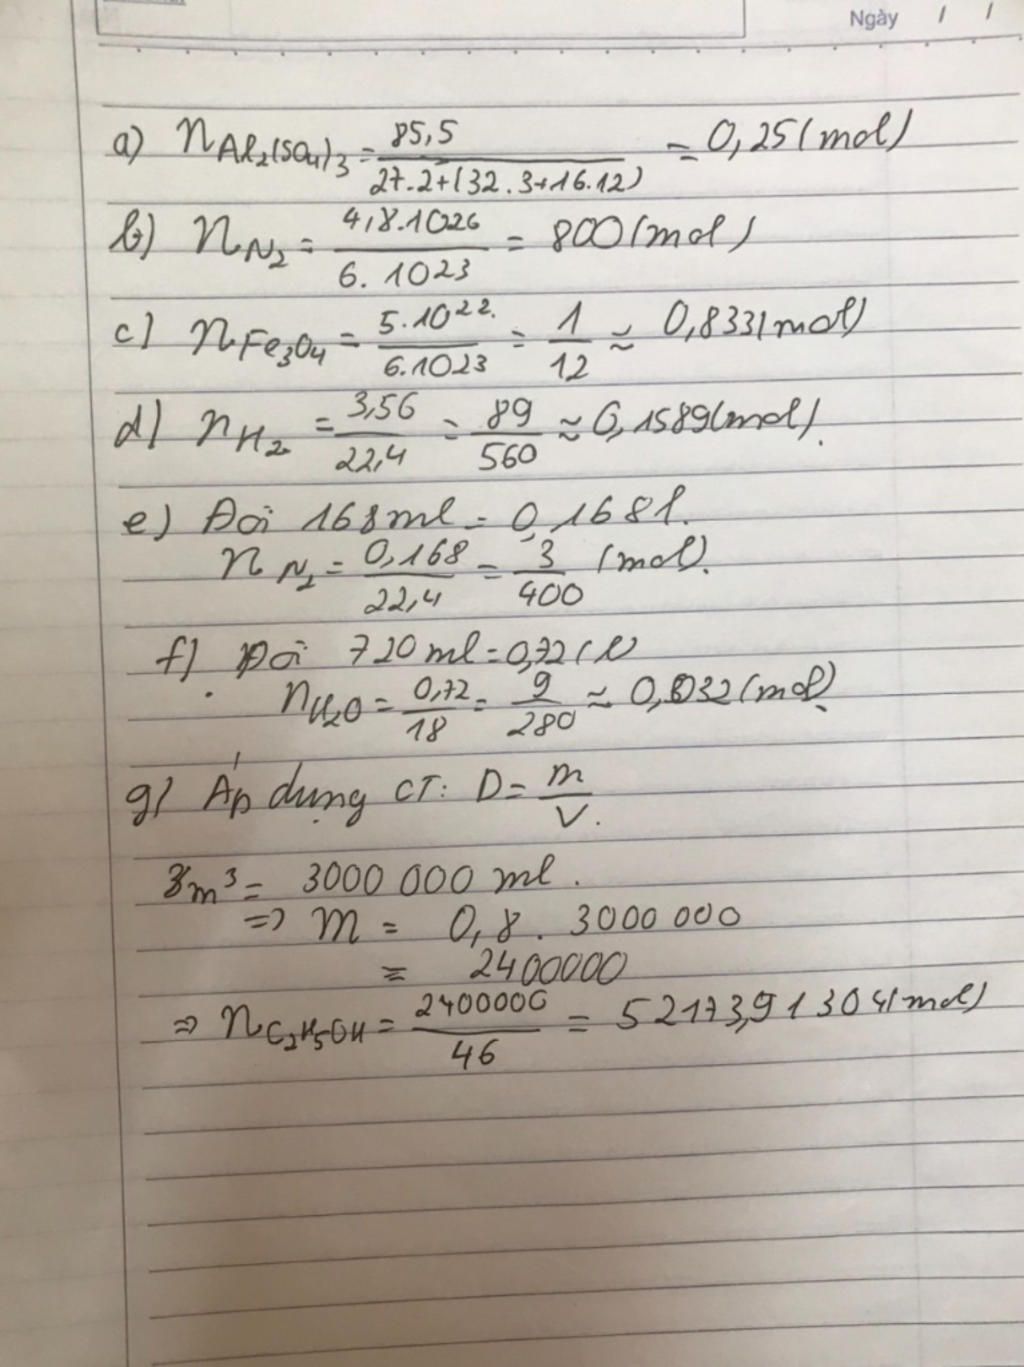 Ngày / /
a) nAl₂(SO₄)₃ = 85,5 / 27.2+(32.3+16.12) = 0,25 (mol)
b) nN₂ = 4,8.1026 / 6.1023 = 800 (mol)
c) nFe₃O₄ = 5.10²². / 6.1023 = 1/12 ≈ 0,833 (mol)
d) nH₂ = 3,56 / 22,4 = 89/560 ≈ 0,1589 (mol).
e) Đổi 168ml = 0,168l.
nN₂ = 0,168 / 22,4 = 3/400 (mol).
f) Đổi 720ml = 0,72 (l)
nH₂O = 0,72 / 18 = 9/280 ≈ 0,032 (mol)
g) Áp dụng CT: D = m/V.
3m³ = 3000 000 ml.
=> m = 0,8 . 3000 000
= 2400000
=> nC₂H₅OH = 2400000 / 46 = 52173,91304 (mol)